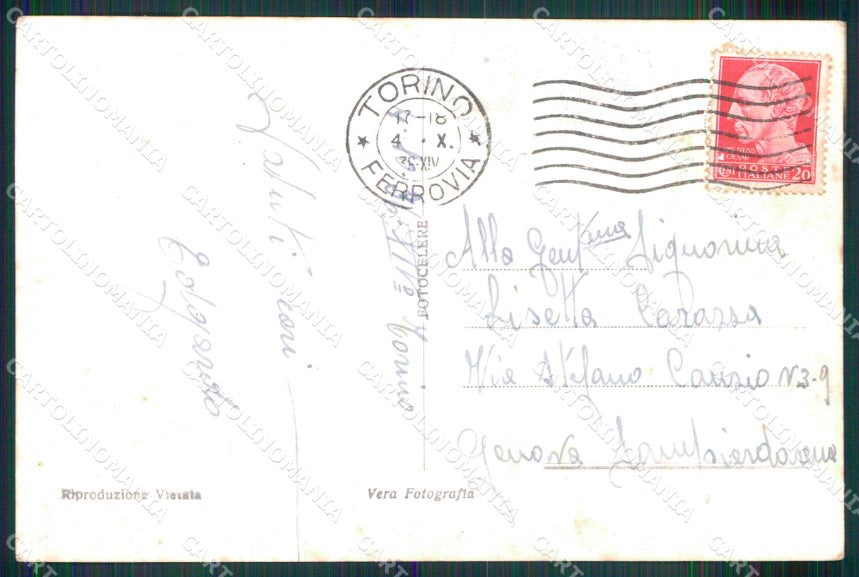 TORINO
17-18
4 . X.
35 XIV
FERROVIA
GIULIO
CESARE
POSTE
ITALIANE 20
Alla Gent.ma Signorina
Lisetta Carassa
Via Stefano Canzio N 3-9
Genova Sampierdarena
Saluti cari
XIVº Torino
FOTOCELERE
Riproduzione Vietata
Vera Fotografia
CARTOLINOMANIA